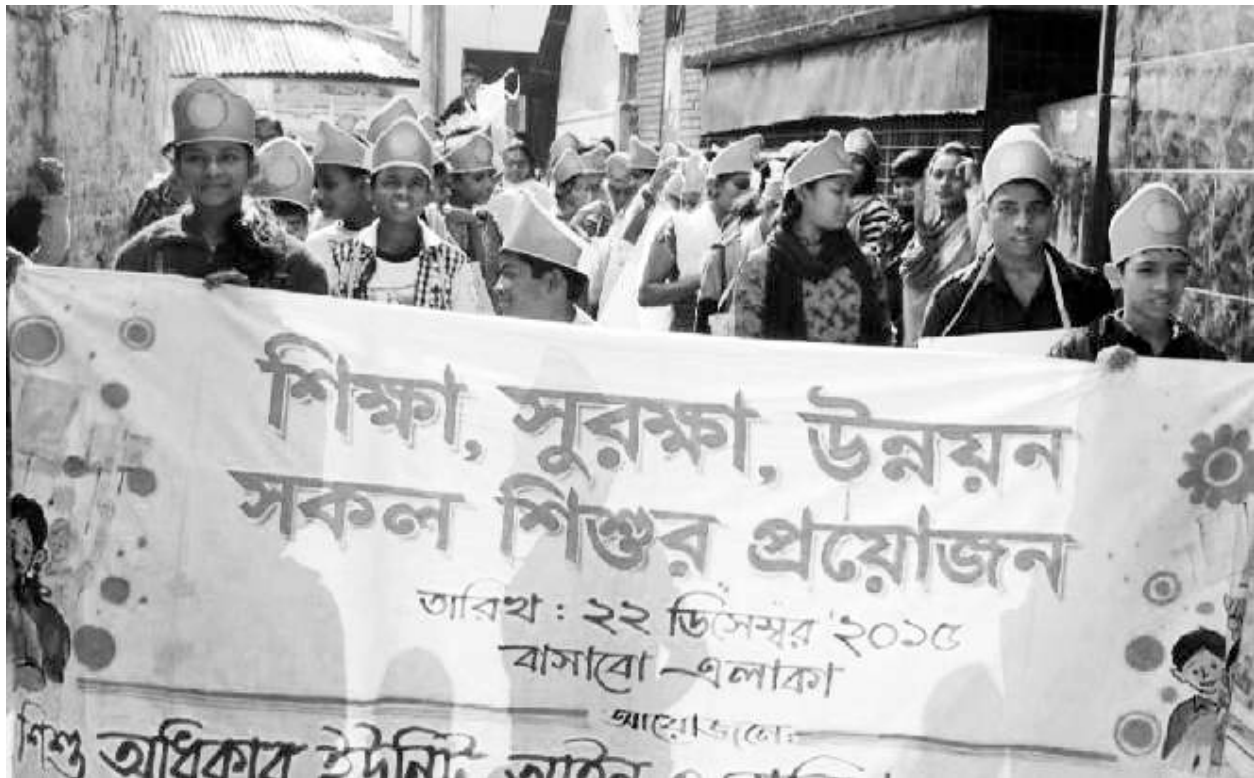 শিক্ষা, সুরক্ষা, উন্নয়ন
সকল শিশুর প্রয়োজন
তারিখ : ২২ ডিসেম্বর '২০১৫
বাসাবো এলাকা
আয়োজনে:
শিশু অধিকার ইউনিট আইন ও